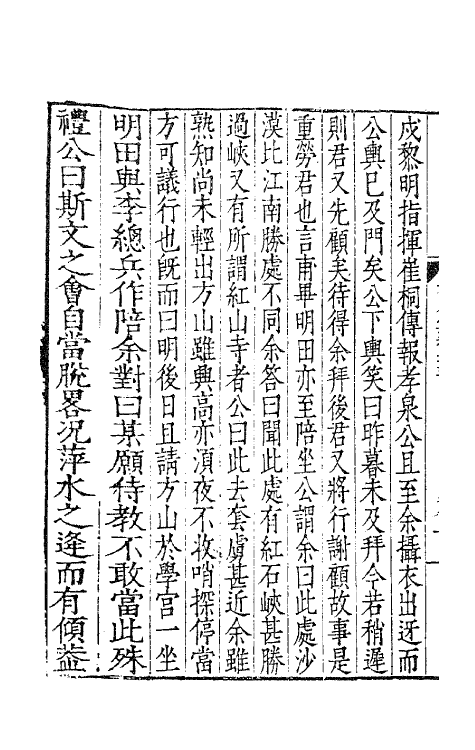 戍黎明指揮崔桐傳報孝泉公且至余攝衣出迓而
公輿已及門矣公下輿笑曰昨暮未及拜今若稍遲
則君又先顧矣待得余拜後君又將行謝顧故事是
重勞君也言甫畢明田亦至陪坐公謂余曰此處沙
漠比江南勝處不同余答曰聞此處有紅石峽甚勝
過峽又有所謂紅山寺者公曰此去套虜甚近余雖
熟知尚未輕出方山雖興高亦湏夜不收哨探停當
方可議行也旣而曰明後日且請方山於學宫一坐
明田與李總兵作陪余對曰某願侍教不敢當此殊
禮公曰斯文之會自當脫畧况萍水之逢而有傾葢